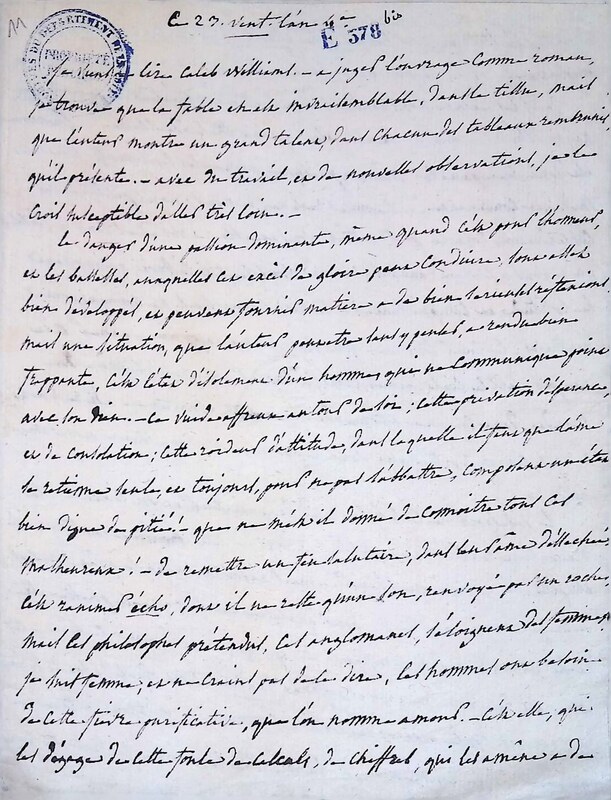 11
Ce 23. vent. l'an 4e
E 378 bis
PROPRIÉTÉ
je viens de lire Caleb Williams. – a juger l'ouvrage comme roman,
je trouve que la fable en est invraisemblable, dans le tissu, mais
que l'auteur montre un grand talent, dans chacun des tableaux rembrunis
qu'il présente. – avec du travail, et de nouvelles observations, je le
crois susceptible d'aller très loin. –
le danger d'une passion dominante, même quand c'est pour l'honneur,
et les bassesses, auxquelles cet excès de gloire peut conduire, sont assez
bien développés, et peuvent fournir matière a de bien sérieuses réflexions
mais une situation, que l'auteur peut être sans y penser, a rendu bien
frappante, c'est l'état d'isolement d'un homme, qui ne communique point
avec son dieu. – ce vuide affreux autour de soi; cette privation d'espérance,
et de consolation; cette roideur d'attitude, dans laquelle il faut que l'âme
se retienne seule, et toujours, pour ne pas s'abbattre, composent un état
bien digne de pitié! – que ne m'est il donné de connoitre tous ces
malheureux! – de remettre un feu salutaire, dans leur âme désséchée,
c'est ranimer écho, dont il ne reste qu'un son, renvoyé par un rocher,
mais ces philosophes prétendus, ces anglomanes, s'éloignent des femmes,
je suis femme, et ne crains pas de le dire, les hommes ont besoin
de cette fièvre purificative, que l'on nomme amour. – c'est elle, qui
les dégage de cette foule de calculs, de chiffres, qui les amène a de